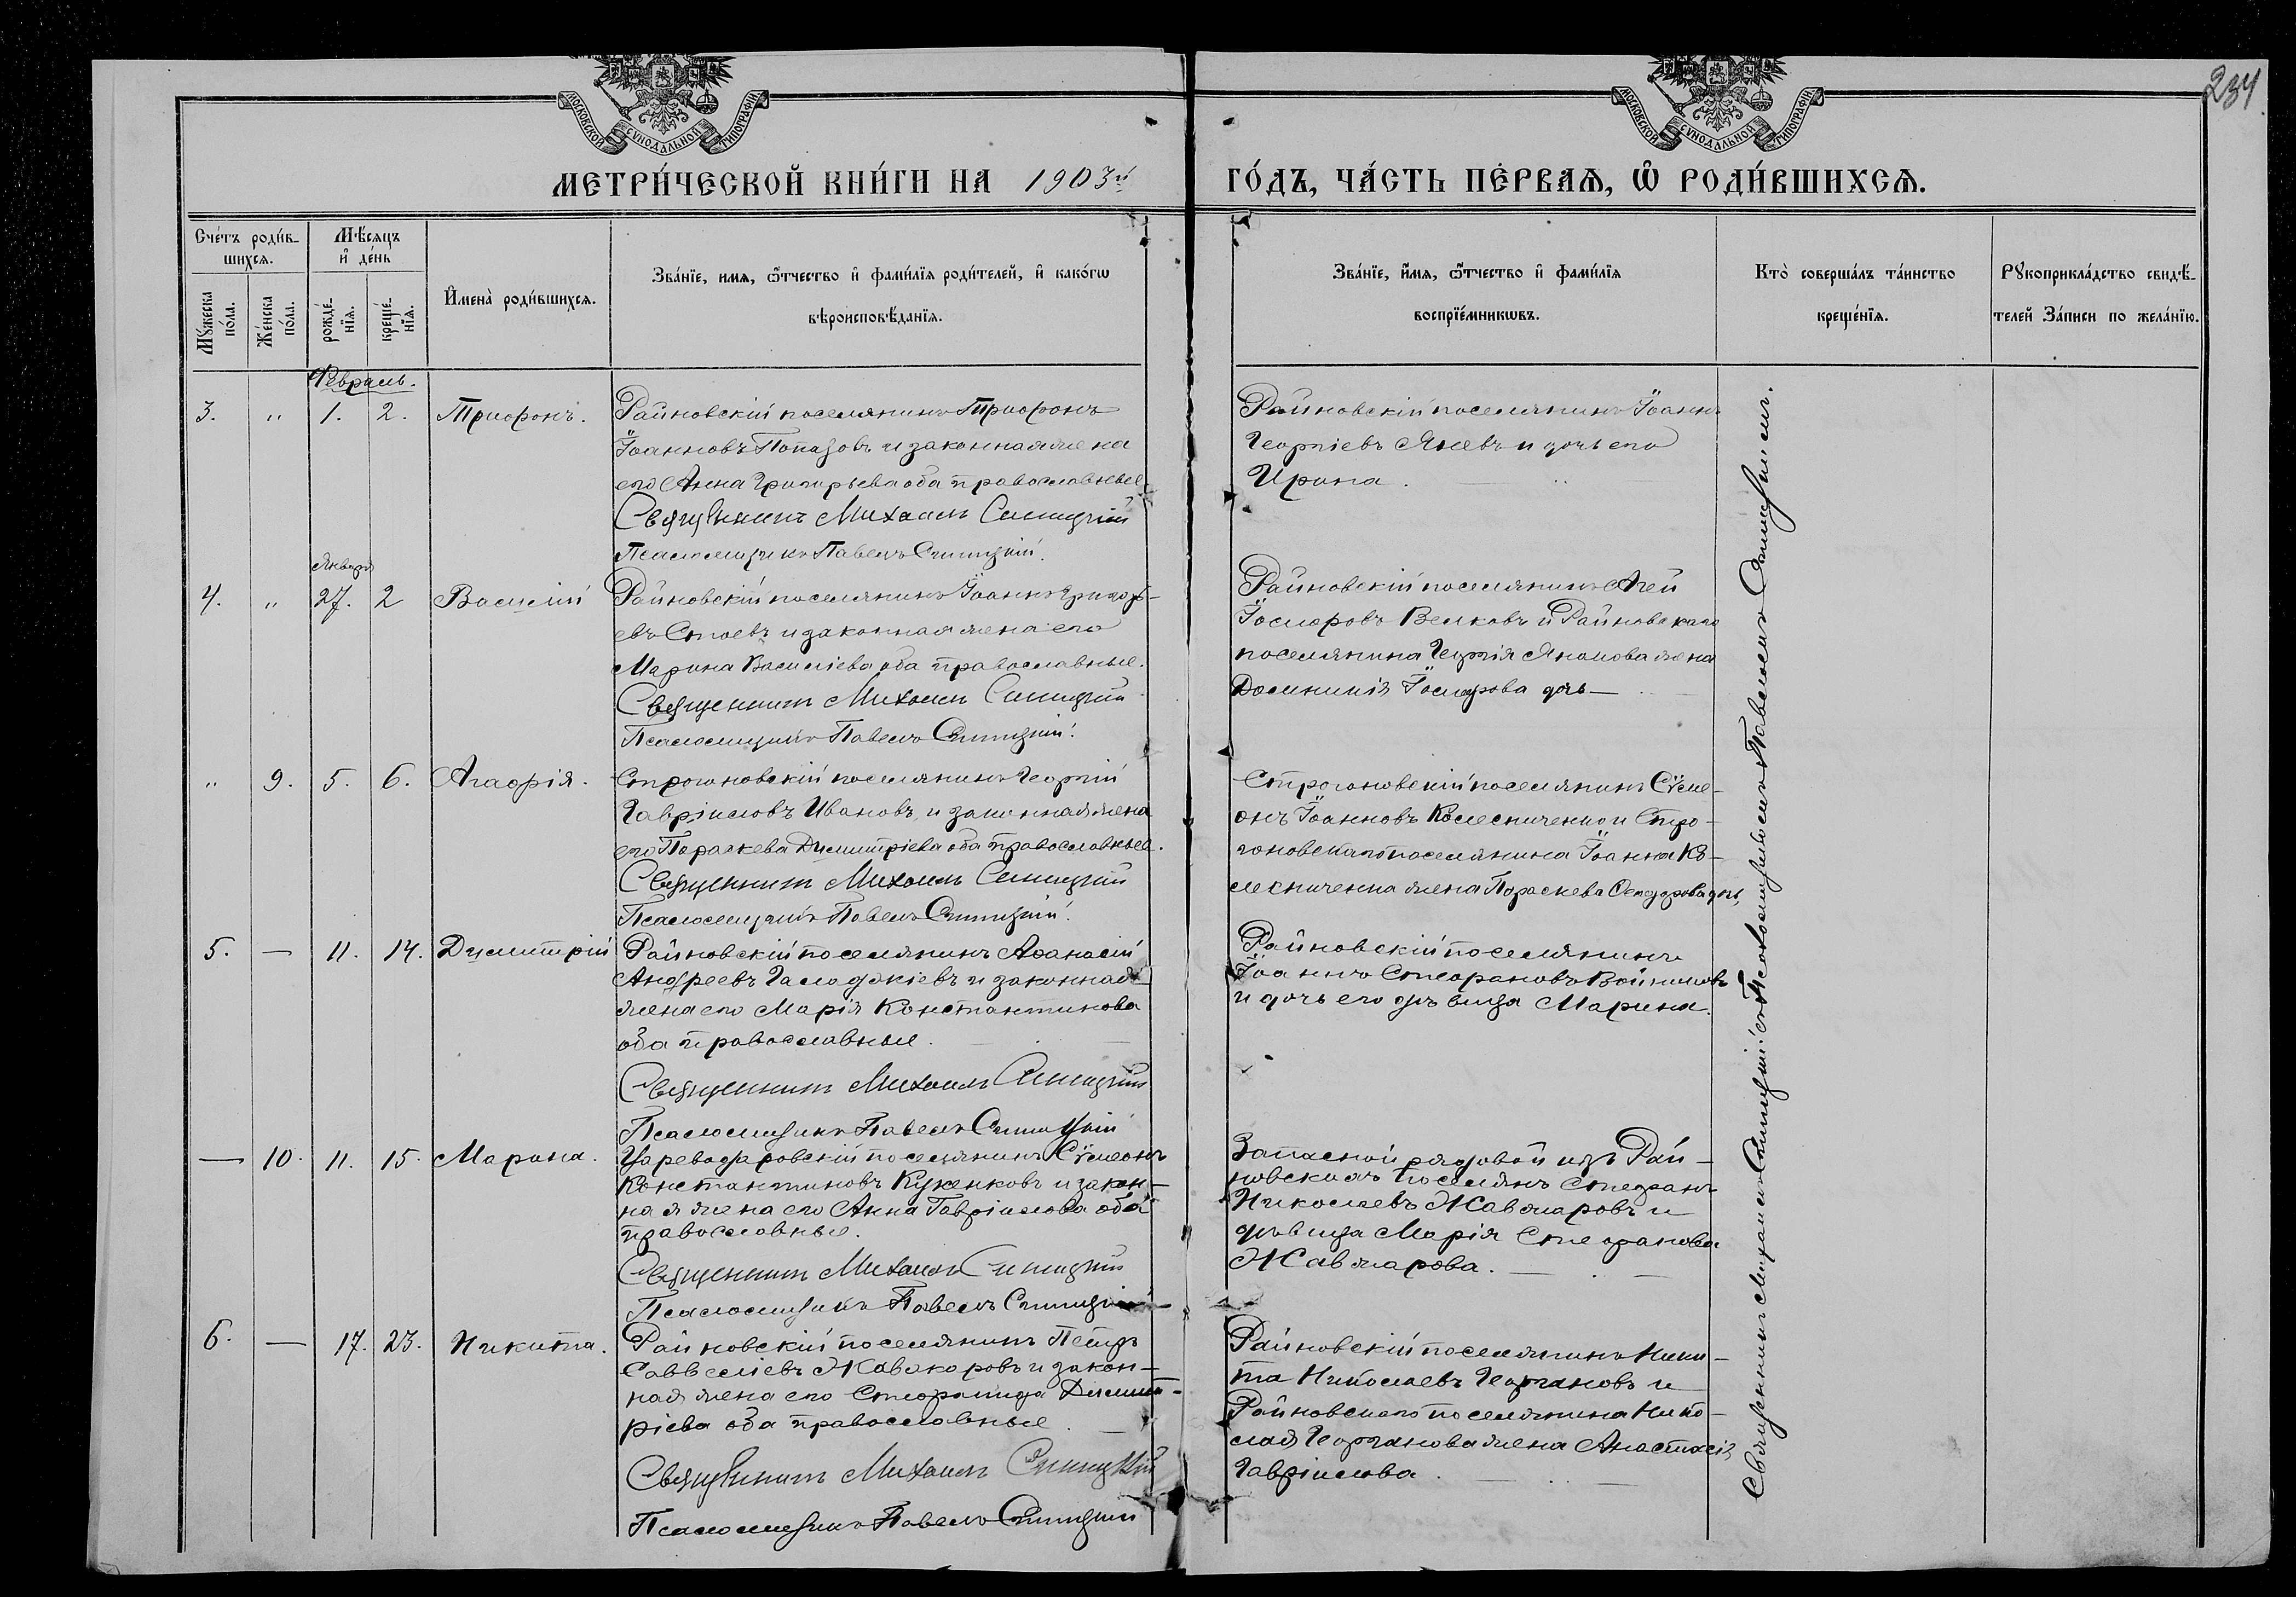 234
МОСКОВСКОЙ СѴНОДАЛЬНОЙ ТИПОГРАФІИ.
МОСКОВСКОЙ СѴНОДАЛЬНОЙ ТИПОГРАФІИ.
МЕТРИ́ЧЕСКОЙ КНИ́ГИ НА 1903й
ГО́ДЪ, ЧА́СТЬ ПЕ́РВАѦ, Ѡ РОДИ́ВШИХСѦ.
Сче́тъ роди́в-
шихсѧ.
Мꙋ́жеска
по́ла.
Же́нска
по́ла.
Мѣ́сѧцъ
и҆ де́нь
рожде́-
нїѧ.
креще́-
нїѧ.
И҆мена̀ роди́вшихсѧ.
Зва́нїе, имѧ, ѻ҆́тчество и҆ фами́лїѧ роди́телей, и҆ како́гѡ
вѣроисповѣ́данїѧ.
Зва́нїе, и҆́мѧ, ѻ҆́тчество и҆ фами́лїѧ
воспрїе́мникѡвъ.
Кто̀ соверша́лъ та́инство
креще́нїѧ.
Рꙋкоприкла́дство свидѣ́-
телей За́писи по жела́нїю.
Февраль.
3. " 1. 2. Трифонъ.
Райновскій поселянинъ Трифонъ
Іоанновъ Попазовъ и законная жена
его Анна Григорьева оба православные
Священникъ Михаилъ Синицкій
Псаломщикъ Павелъ Синицкій.
Райновскій поселянинъ Іоаннъ
Георгіевъ Яневъ и дочь его
Ирина.
Января
4. " 27. 2 Василій
Райновскій поселянинъ Іоаннъ Григорь-
евъ Стоевъ и законная жена его
Марина Василіева оба православные.
Священникъ Михаилъ Синицкій
Псаломщикъ Павелъ Синицкій.
Райновскій поселянинъ Агей
Ѳеодоровъ Велковъ и Райновскаго
поселянина Георгія жена
Доминикія Ѳеодорова дочь
" 9. 5. 6. Агафія.
Строгоновскій поселянинъ Георгій
Гавріиловъ Ивановъ, и законная жена
его Параскева Димитріева оба православные.
Священникъ Михаилъ Синицкій
Псаломщикъ Павелъ Синицкій.
Строгоновскій поселянинъ Сѵме-
онъ Іоанновъ Колесниченко и Стро-
гоновскаго поселянина Іоанна Ко-
лесниченка жена Параскева дочь
5. — 11. 14. Димитрій
Райновскій поселянинъ Аѳанасій
Андреевъ и законная
жена его Марія Константинова
оба православные.
Священникъ Михаилъ Синицкій
Псаломщикъ Павелъ Синицкій
Райновскій поселянинъ
Іоаннъ Стефановъ Войниковъ
и дочь его дѣвица Марина.
— 10. 11. 15. Марина.
Цареводаровскій поселянинъ Сѵмеонъ
Константиновъ Куженковъ и закон-
ная жена его Анна Гавріилова оба
православные.
Священникъ Михаилъ Синицкій
Псаломщикъ Павелъ Синицкій
Запасной рядовой изъ Рай-
новскихъ поселянъ Стефанъ
Николаевъ Жавжаровъ и
дѣвица Марія Стефанова
Жавжарова.
6. — 17. 23. Никита.
Райновскій поселянинъ Петръ
Савеліевъ и закон-
ная жена его Стефанида Димит-
ріева оба православные
Священникъ Михаилъ Синицкій
Псаломщикъ Павелъ Синицкій
Райновскій поселянинъ Ники-
та Николаевъ и
Райновскаго поселянина Нико-
лая жена Анастасія
Гавріилова.
Священникъ Михаилъ Синицкій съ Псаломщикомъ Павеломъ Синицкимъ.